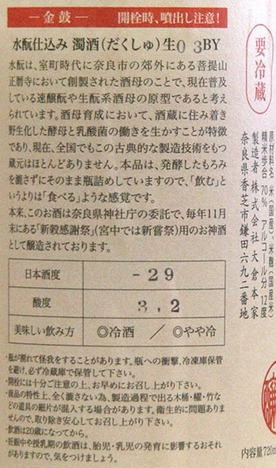 金鼓 開栓時、噴出し注意!
水酛仕込み 濁酒(だくしゅ)生03BY
水酛は、室町時代に奈良市の郊外にある菩提山
正暦寺において創製された酒母のことで、現在普及し
ている速醸酛や生酛系酒母の原型であると考え
られています。酒母育成において、酒蔵に住み着き
野生化した酵母と乳酸菌の働きを生かすことが特徴
であり、現在、全国でもこの古典的な製造技術をもつ
蔵元はほとんどありません。本品は、発酵したもろみ
を漉さずにそのまま瓶詰めしていますので、「飲む」と
いうよりは「食べる」ような感覚です。
本来、このお酒は奈良県神社庁の委託で、毎年11月
末にある「新穀感謝祭」(宮中では新嘗祭)用のお神酒
として醸造されております。
日本酒度 -29
酸度 3,2
美味しい飲み方 ◎冷酒 / ◎やや冷
・瓶が割れて怪我をすることがあります。瓶への衝撃、冷凍庫保管
を避け、必ず冷蔵庫で保管して下さい。
・開栓には十分ご注意の上、お早めにお召し上がり下さい。
・商品の特性上、全く漉さない為、製造過程で出る木桶・櫂・竹な
どの道具の磨片が混入する場合があります。衛生的に問題ありま
せんので、取り除き安心してお召し上がり下さい。
・飲酒は20歳になってから。
・妊娠中や授乳期の飲酒は、胎児・乳児の発育に影響するおそれ
がありますので、気をつけましょう。
要冷蔵
原材料名 米(国産)、米麹(国産米)
精米歩合 70% アルコール分 12度
製造者 株式会社 大倉本家
奈良県香芝市鎌田六九二番地